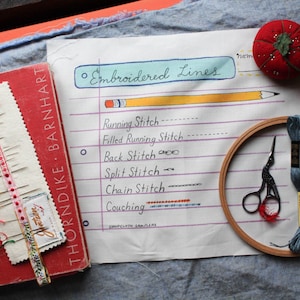 Embroidered Lines
Running Stitch
Filled Running Stitch
Back Stitch
Split Stitch
Chain Stitch
Couching
THORNDIKE · BARNHART